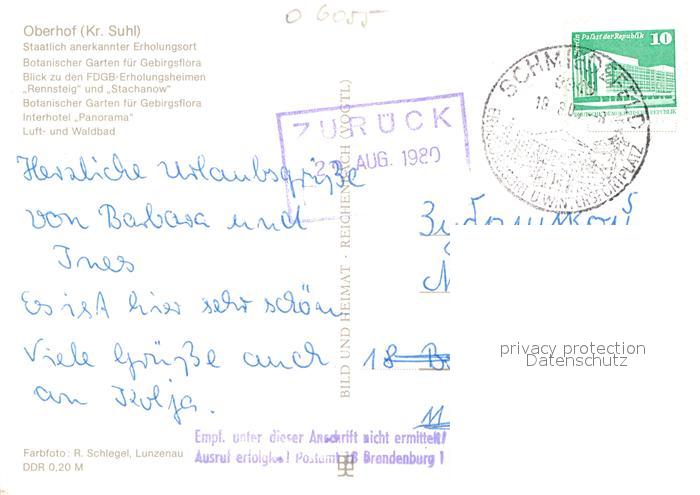 O 6055
Oberhof (Kr. Suhl)
Staatlich anerkannter Erholungsort
Botanischer Garten für Gebirgsflora
Blick zu den FDGB-Erholungsheimen
„Rennsteig" und „Stachanow"
Botanischer Garten für Gebirgsflora
Interhotel „Panorama"
Luft- und Waldbad
Palast der Republik 10
SCHMIEDEFELD
ZURÜCK
AUG. 1980
Herzliche Urlaubsgrüße
von Barbara und
Ines
Es ist hier sehr schön
Viele Grüße auch
an Kolja.
BILD UND HEIMAT · REICHENBACH (VOGTL)
18
privacy protection
Datenschutz
Empf. unter dieser Anschrift nicht ermittelt!
Ausruf erfolglos! Postamt 18 Brandenburg 1
Farbfoto: R. Schlegel, Lunzenau
DDR 0,20 M